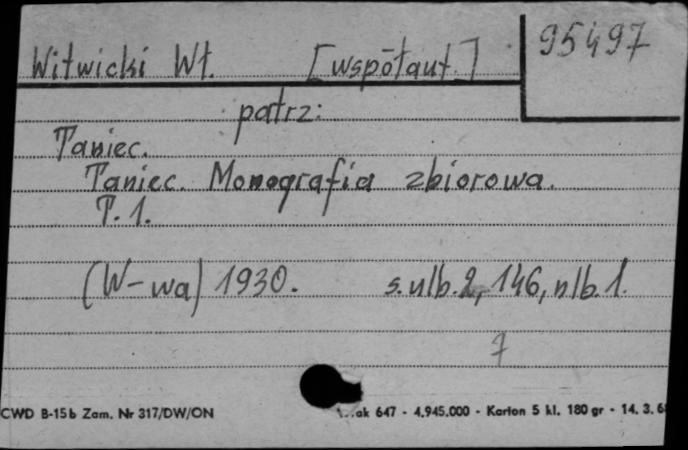 95497
Witwicki Wł. [współaut.]
patrz:
Taniec.
Taniec. Monografia zbiorowa.
T. 1.
(W-wa) 1930. s. nlb. 2, 146, nlb. 1.
7
CWD B-15b Zam. Nr 317/DW/ON ak 647 - 4.945.000 - Karton 5 kl. 180 gr - 14. 3. 6